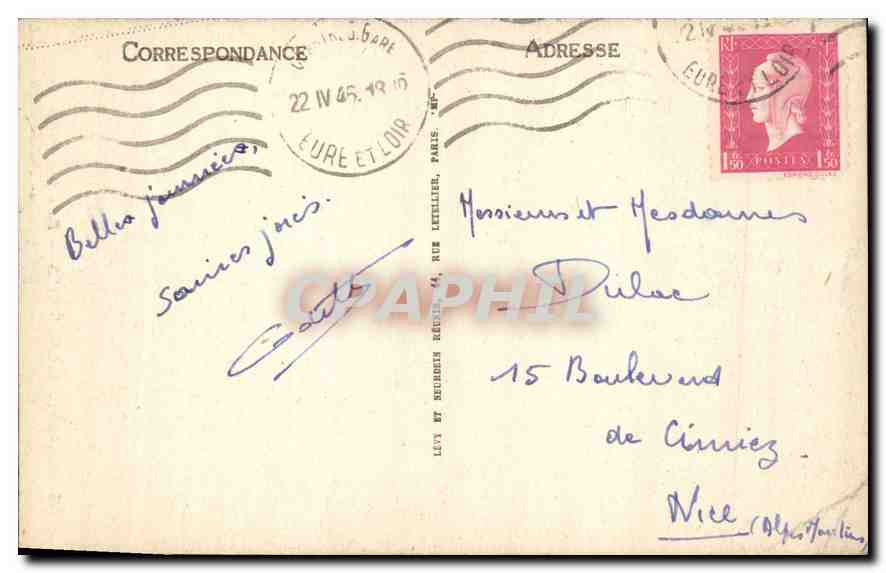 CORRESPONDANCE
ADRESSE
S. GARE
22 IV 45
EURE ET LOIR
22 IV 45
EURE ET LOIR
RF
1F50 POSTES 1F50
Belles journées,
saines joies.
LÉVY ET NEURDEIN RÉUNIS, 44, RUE LETELLIER, PARIS. IMP.
Messieurs et Mesdames
Dulac
15 Boulevard
de Cimiez
Nice (Alpes Maritimes)
CPAPHIL